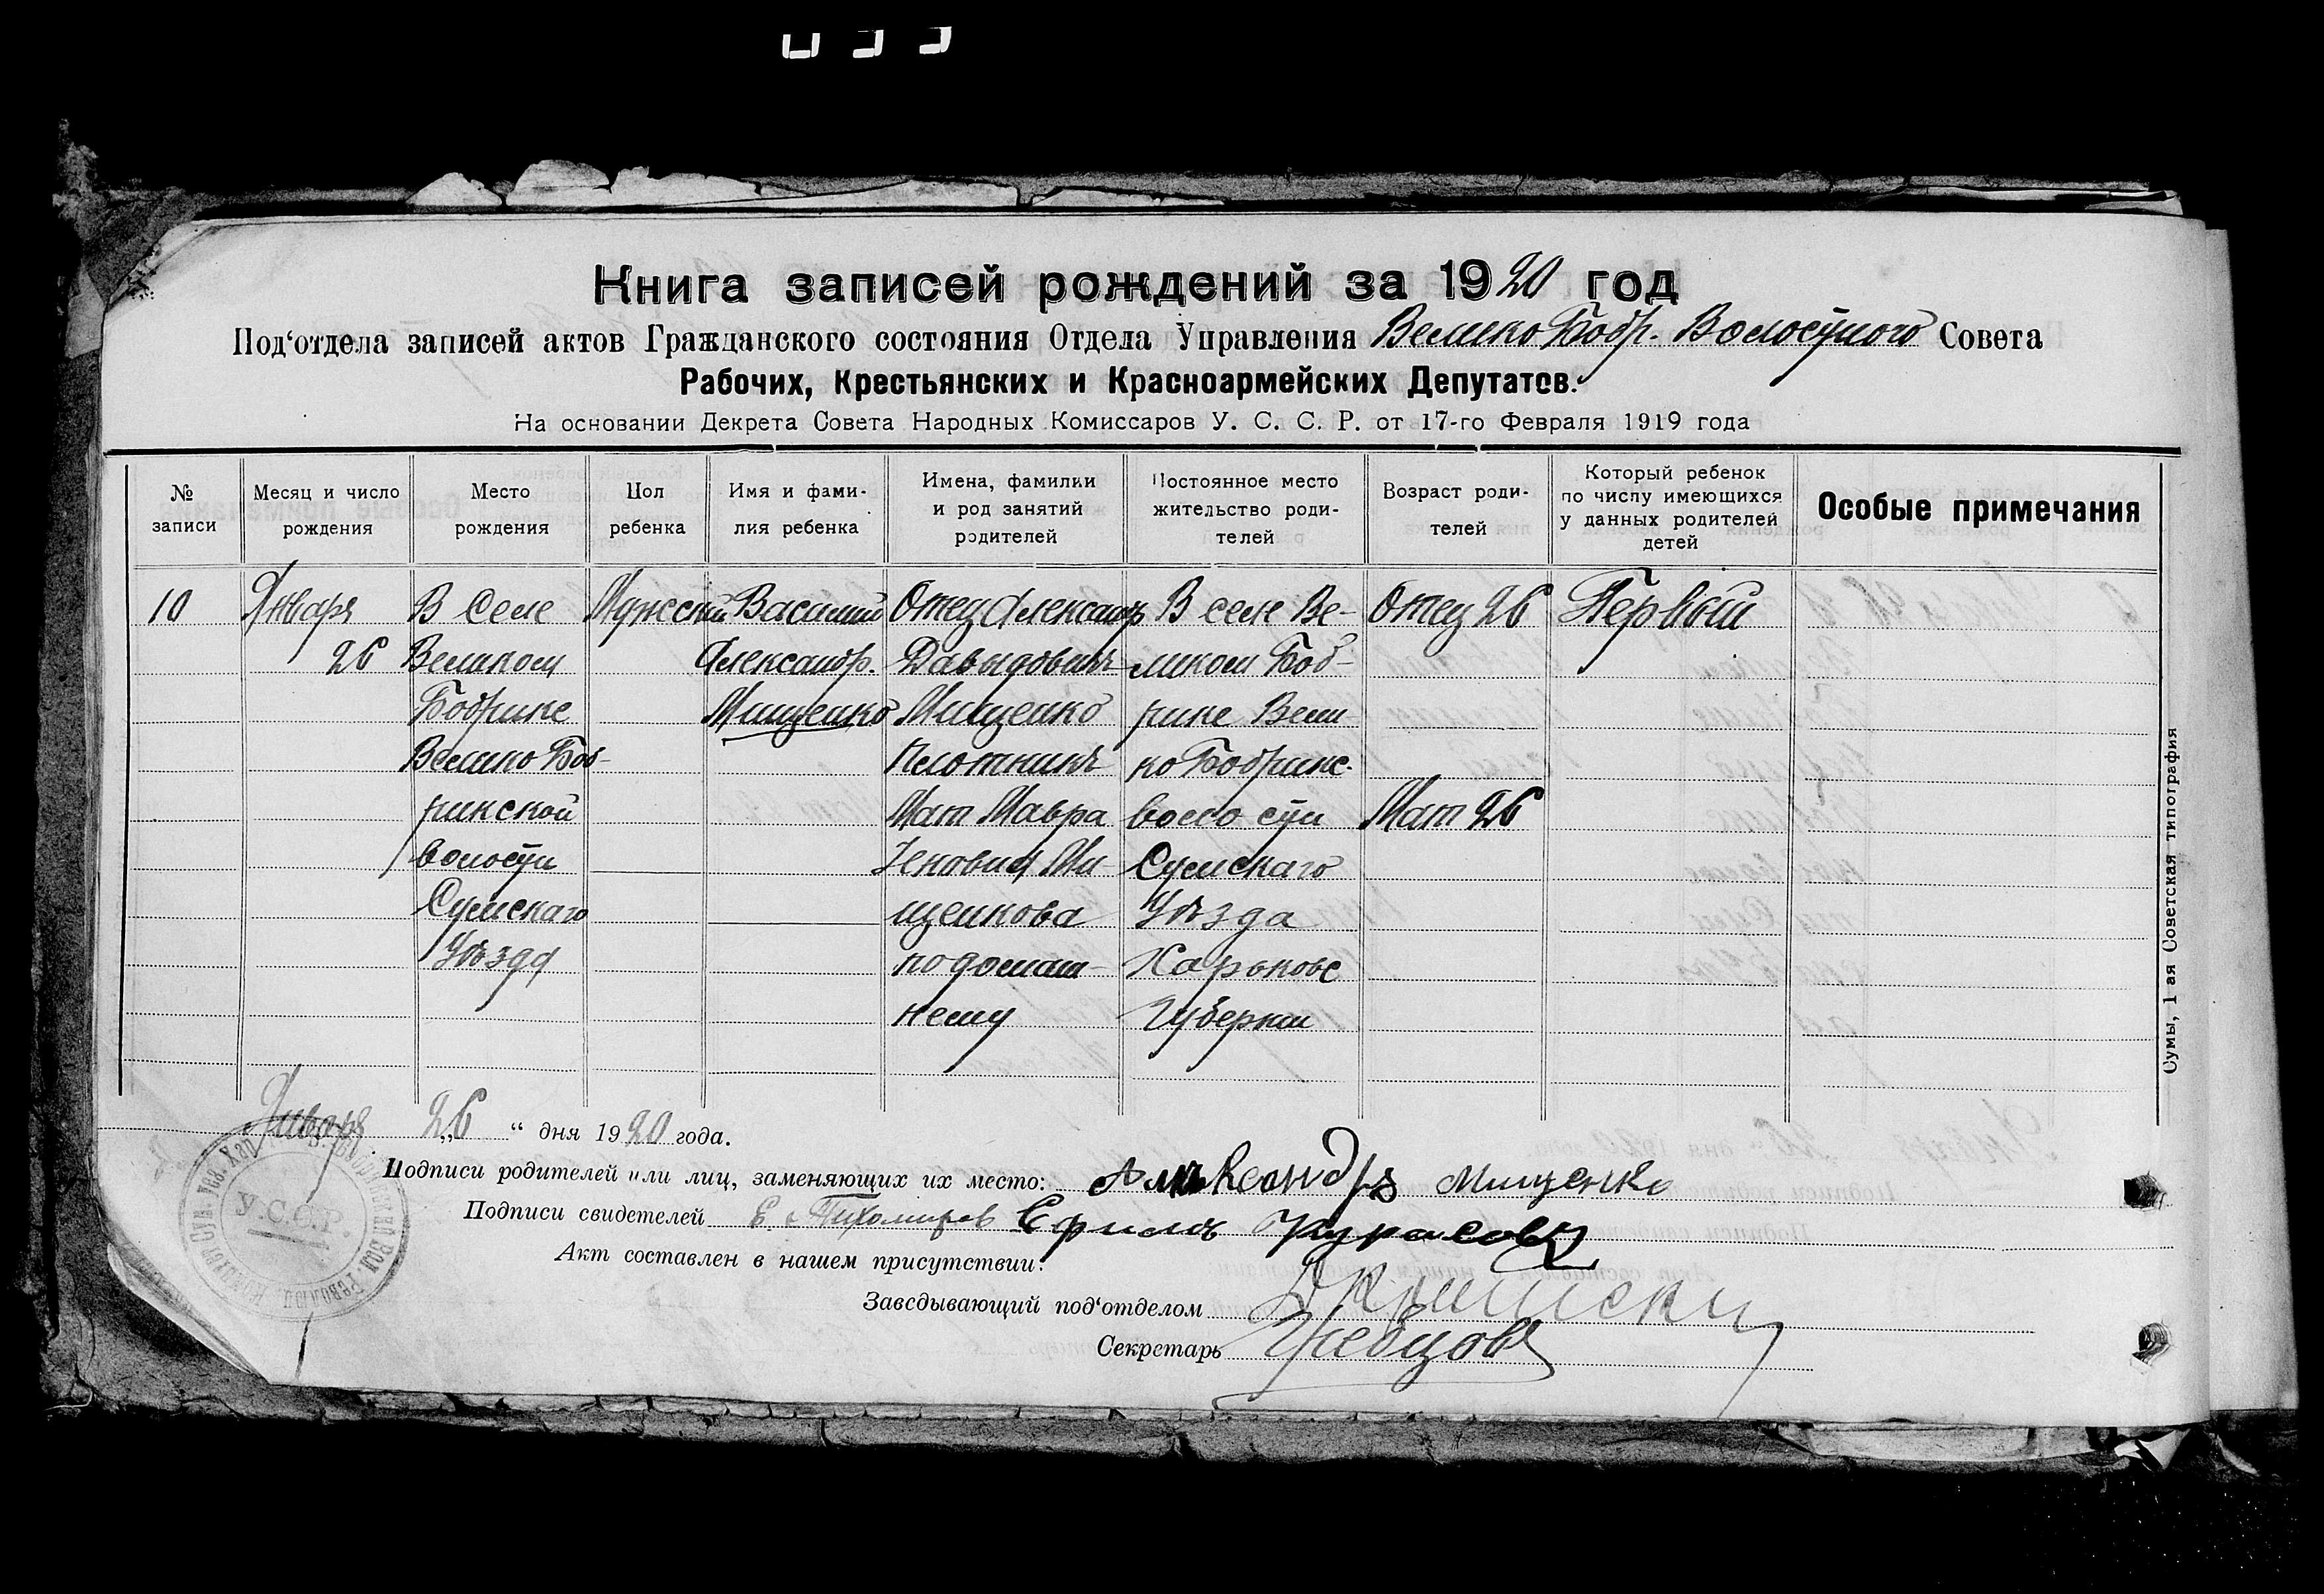 Книга записей рождений за 1920 год
Под'отдела записей актов Гражданского состояния Отдела Управления Велико Бобр. Волостного Совета
Рабочих, Крестьянских и Красноармейских Депутатов.
На основании Декрета Совета Народных Комиссаров У. С. С. Р. от 17-го Февраля 1919 года
№ записи
Месяц и число рождения
Место рождения
Пол ребенка
Имя и фами-
лия ребенка
Имена, фамилии
и род занятий
родителей
Постоянное место
жительство роди-
телей
Возраст роди-
телей
Который ребенок
по числу имеющихся
у данных родителей
детей
Особые примечания
10
Января
26
В Селе
Великом
Бобрике
Велико Боб-
ринской
волости
Сумскаго
Уѣзда
Мужской
Василий
Александр.
Мищенко
Отец Александр
Давыдовичъ
Мищенко
Плотникъ
Мат Мавра
Ми-
щенкова
по домаш-
нему
В селе Ве-
ликом Боб-
рике Вели-
ко Бобринс.
волости
Сумскаго
Уѣзда
Харьковс
Губернии
Отец 26
Мат 26
Первый
Января 26 " дня 1920 года.
Подписи родителей или лиц, заменяющих их место: Александръ Мищенко
Подписи свидетелей Е Тихомиров Ефимъ Курасовъ
Акт составлен в нашем присутствии:
Заведывающий под'отделом
Секретарь
У.С.С.Р.
Сумы, 1 ая Советская типография